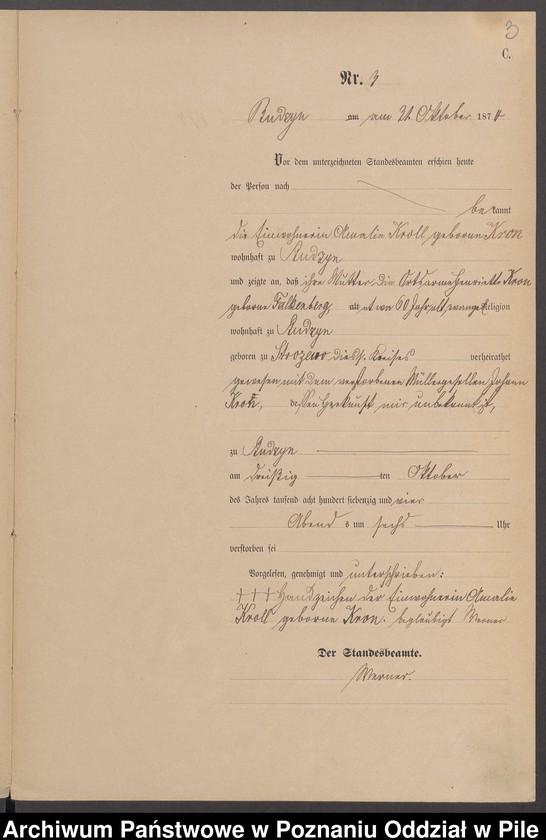 3
C.
Nr. 3
Budzyn am am 31 Oktober 1874
Vor dem unterzeichneten Standesbeamten erschien heute
der Person nach
bekannt
die Einwohnerin Amalie Kroll geborne Kron
wohnhaft zu Budzyn
und zeigte an, daß ihre Mutter, die Ortsarme Henriette Kron
geborne Falkenberg, alt etwa 60 Jahr alt, evangel Religion
wohnhaft zu Budzyn
geboren zu Strozewo diess. Kreises verheirathet
gewesen mit dem verstorbenen Müllergesellen Johann
Kron, dessen Herkunft mir unbekannt ist,
zu Budzyn
am dreißig ten Oktober
des Jahres tausend acht hundert siebenzig und vier
Abend s um sechs Uhr
verstorben sei
Vorgelesen, genehmigt und unterschrieben:
+ + + Handzeichen der Einwohnerin Amalie
Kroll geborne Kron. beglaubigt Werner
Der Standesbeamte.
Werner.
Archiwum Państwowe w Poznaniu Oddział w Pile